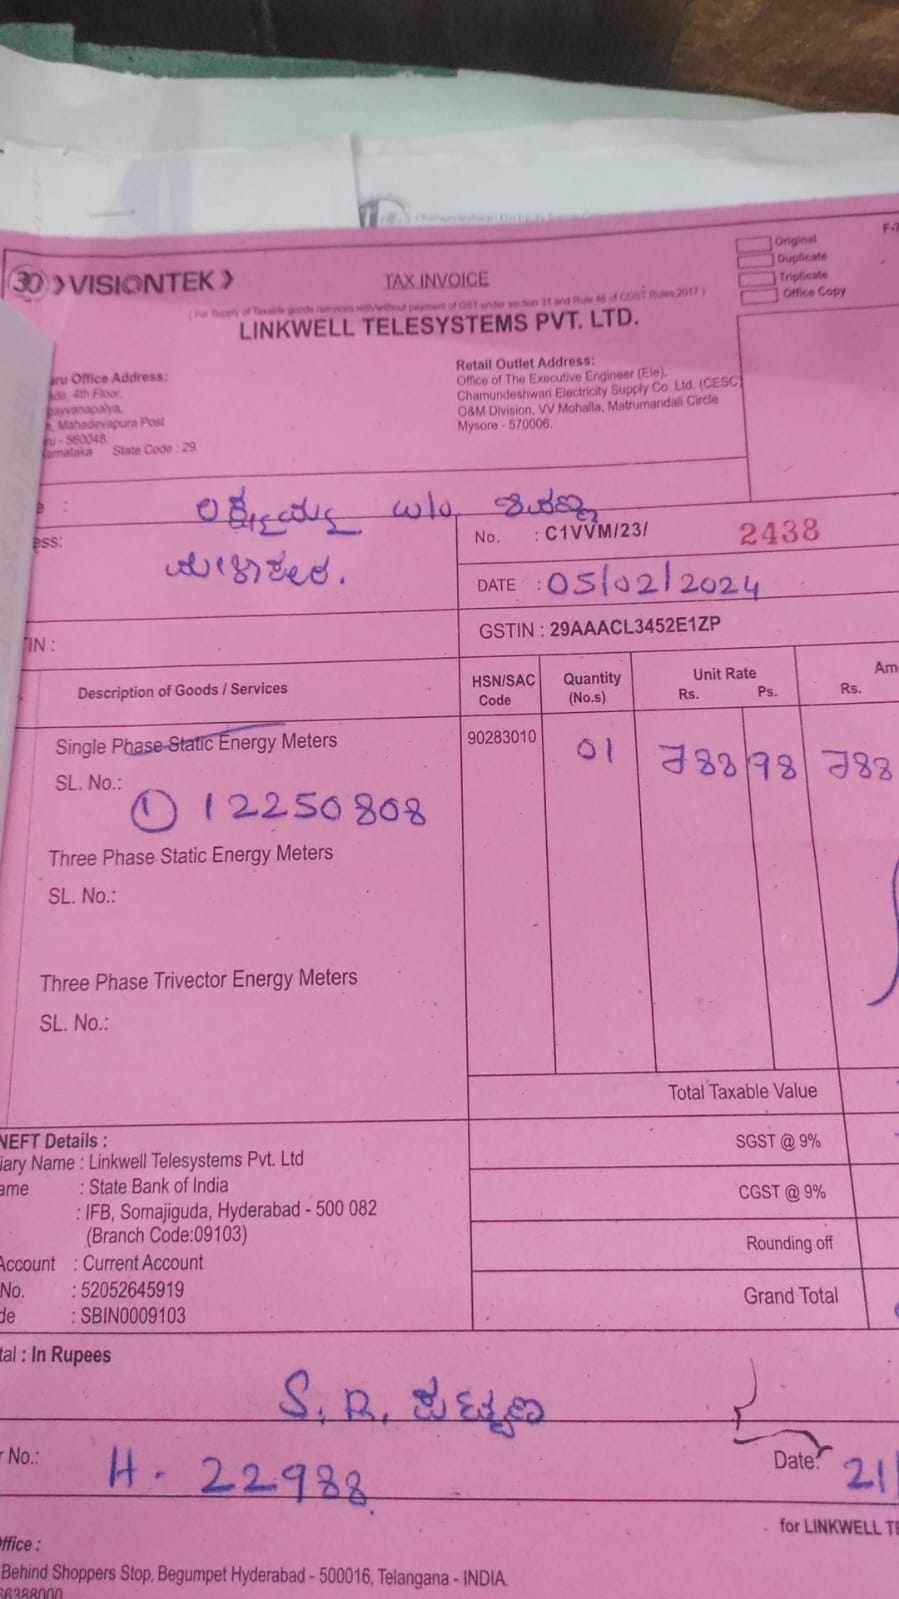 Original
Duplicate
Triplicate
Office Copy
F-7
30 VISIONTEK
TAX INVOICE
( For Supply of Taxable goods /services with/without payment of GST under section 31 and Rule 46 of CGST Rules,2017 )
LINKWELL TELESYSTEMS PVT. LTD.
aru Office Address:
ade, 4th Floor,
payyanapalya,
, Mahadevapura Post
ru - 560048.
arnataka State Code : 29.
Retail Outlet Address:
Office of The Executive Engineer (Ele),
Chamundeshwari Electricity Supply Co. Ltd. (CESC)
O&M Division, VV Mohalla, Matrumandali Circle
Mysore - 570006.
e : W/o
ess:
No. : C1VVM/23/ 2438
DATE : 05/02/2024
TIN :
GSTIN : 29AAACL3452E1ZP
Description of Goods / Services
HSN/SAC Code
Quantity (No.s)
Unit Rate
Rs. Ps.
Am
Rs.
Single Phase Static Energy Meters
90283010 01 788 98 788
SL. No.:
① 12250808
Three Phase Static Energy Meters
SL. No.:
Three Phase Trivector Energy Meters
SL. No.:
Total Taxable Value
SGST @ 9%
CGST @ 9%
Rounding off
Grand Total
NEFT Details :
iary Name : Linkwell Telesystems Pvt. Ltd
ame : State Bank of India
: IFB, Somajiguda, Hyderabad - 500 082
(Branch Code:09103)
Account : Current Account
No. : 52052645919
de : SBIN0009103
tal : In Rupees
S. R.
r No.: H - 22988
Date: 21/
for LINKWELL TE
ffice :
Behind Shoppers Stop, Begumpet Hyderabad - 500016, Telangana - INDIA.
66388000